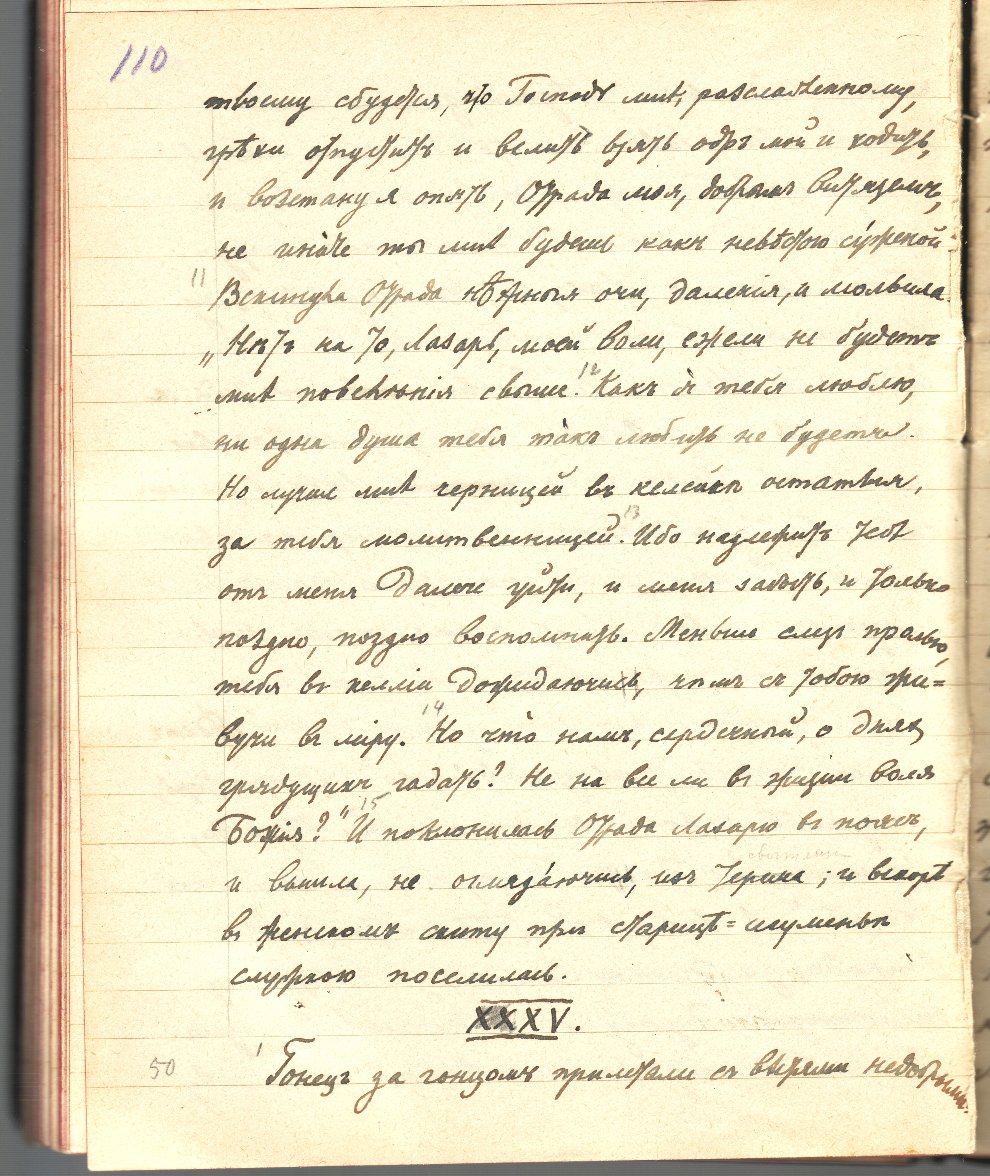 110
твоему сбудется, что Господь мнѣ, разслабленному,
грѣхи отпуститъ и велитъ взять одръ мой и ходить,
и возстану я опять, Отрада моя, добрымъ витяземъ,
не ина́че ты мнѣ будешь какъ невѣстою су́женой."
11 Вскинула Отрада нѣжныя очи, далекія, и молвила:
„Нѣтъ на то, Лазарь, моей воли, ежели не будетъ
мнѣ повелѣнія свыше. 12 Какъ я тебя люблю,
ни одна душа тебя такъ любить не будетъ.
Но лучше мнѣ черницей въ келейкѣ остаться,
за тебя молитвенницей. 13 Ибо надлежитъ тебѣ
отъ меня далече уйти, и меня забыть, и только
поздно, поздно вспомнить. Меньше слезъ пролью,
тебя въ келліи дожидаючись, чѣмъ съ тобою жи=
вучи въ міру. 14 Но что́ намъ, сердечный, о дняхъ
грядущихъ гадать? Не на все ли въ жизни воля
Божія?" 15 И поклонилась Отрада Лазарю въ поясъ,
и вышла, не огляда́ючись, изъ терема; и вскорѣ
въ женскомъ скиту при старицѣ=игуменьѣ
служкою поселилась.
XXXV.
50 1 Гонецъ за гонцомъ прилетали съ вѣстями недобрыми: